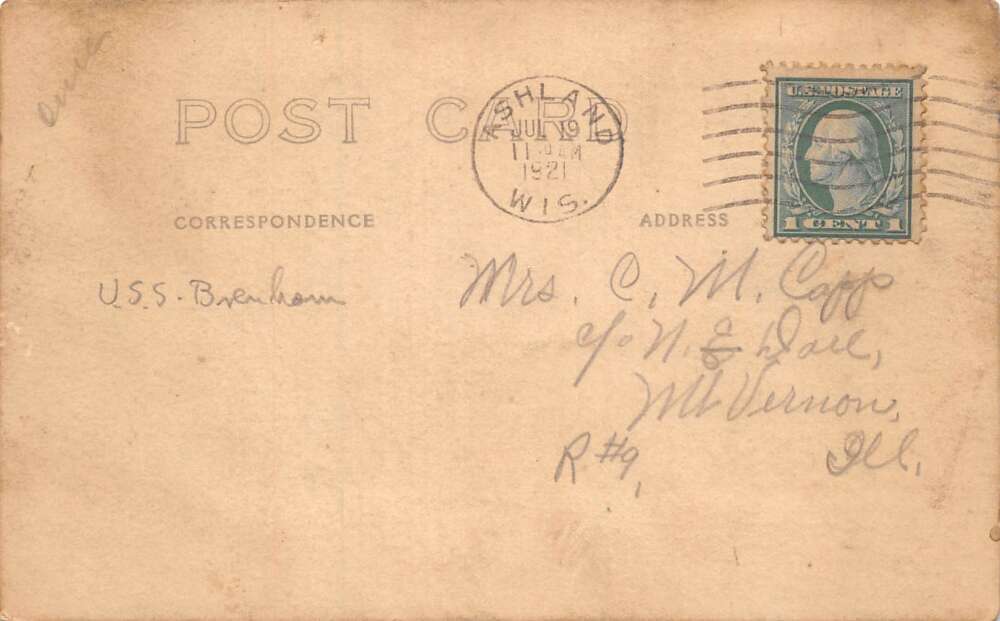 POST CARD
ASHLAND
JUL 19
11 AM
1921
WIS.
U.S. POSTAGE
1 CENT 1
CORRESPONDENCE
ADDRESS
U.S.S. Brenham
Mrs. C. M. Capps
c/o N. E Dare,
Mt Vernon,
R.#9, Ill.